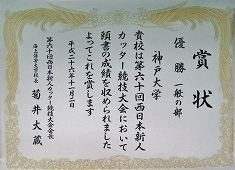 賞状
優勝 一般の部
神戸大学
貴校は第六十回西日本新人
カッター競技大会において
頭書の成績を収められました
よってこれを賞します
平成二十六年十一月二日
第六十回西日本新人カッター競技大会会長
海上保安大学校長
菊井大蔵